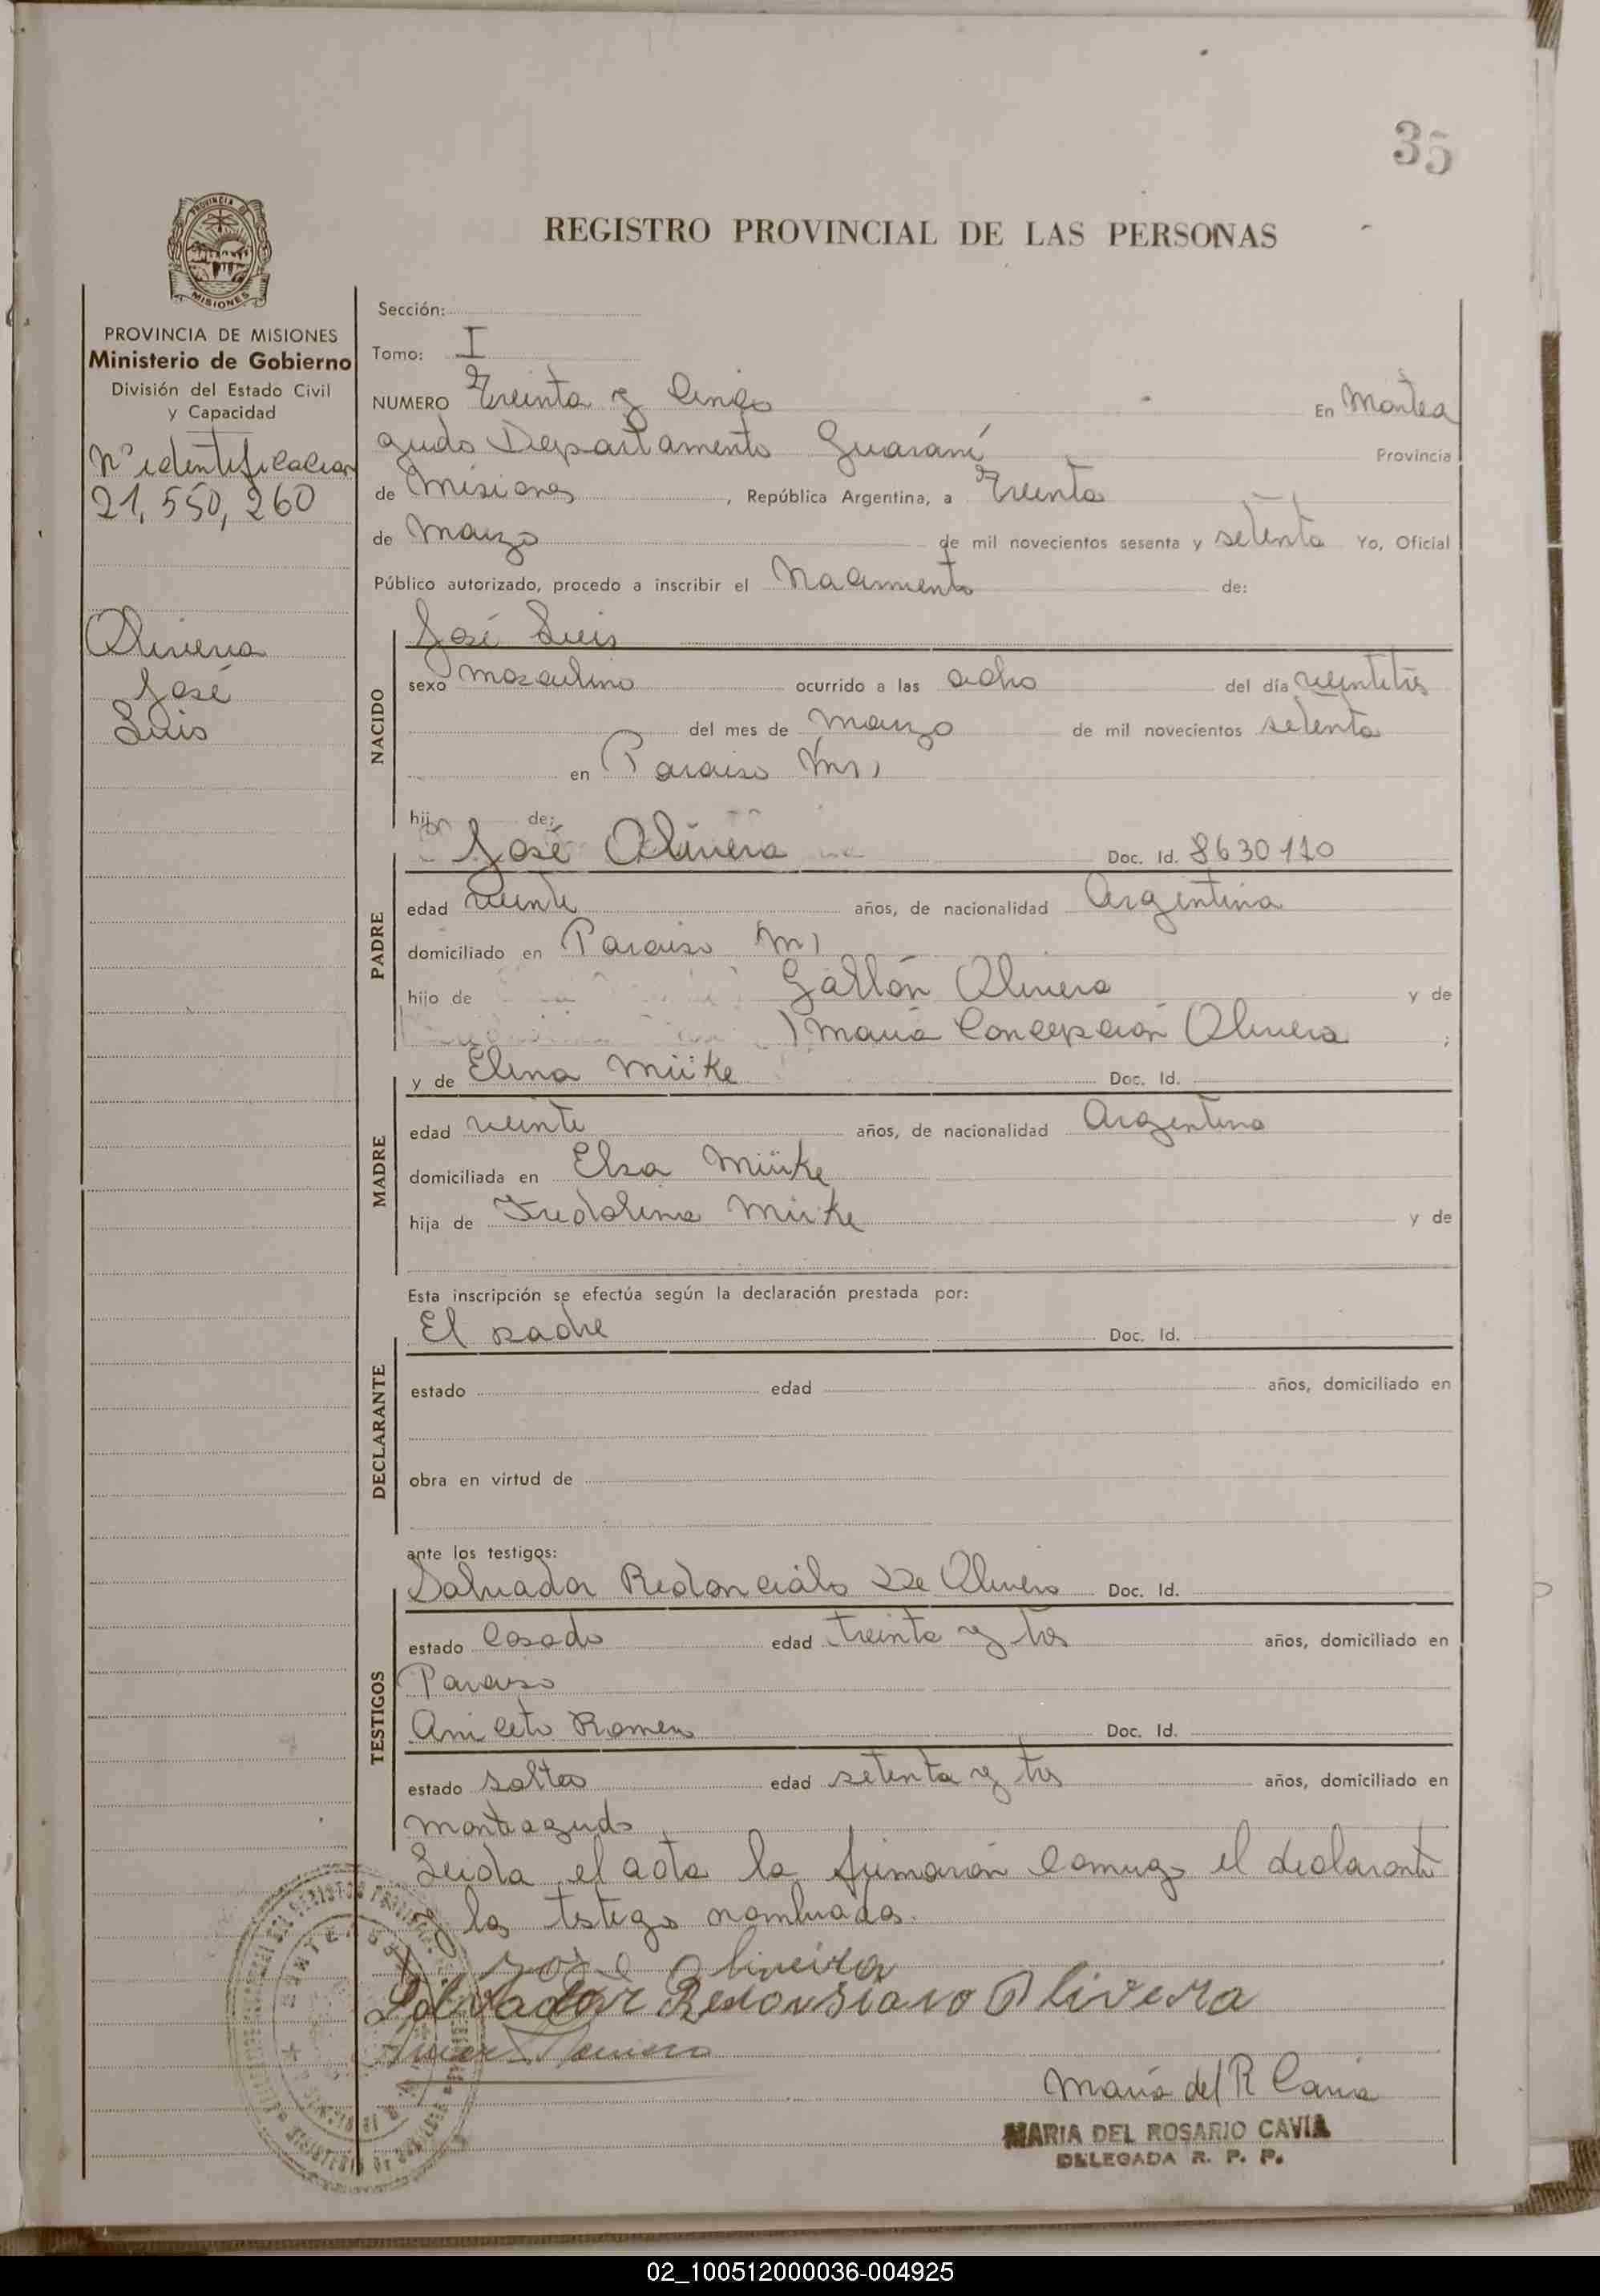 35
REGISTRO PROVINCIAL DE LAS PERSONAS
PROVINCIA DE MISIONES
Ministerio de Gobierno
División del Estado Civil
y Capacidad
Nº identificacion
21,550,260
Olivera
José
Luis
Sección:
Tomo: I
NUMERO Treinta y Cinco En Montea
gudo Departamento Guaraní Provincia
de Misiones, República Argentina, a Treinta
de Marzo de mil novecientos sesenta y setenta Yo, Oficial
Público autorizado, procedo a inscribir el Nacimiento de:
NACIDO
José Luis
sexo masculino ocurrido a las ocho del día veintitrés
del mes de Marzo de mil novecientos setenta
en Paraiso
hijo de:
PADRE
José Olivera Doc. Id. 8630110
edad veinte años, de nacionalidad Argentina
domiciliado en Paraiso
hijo de Olivera y de
María Concepción Olivera ;
MADRE
y de Elena Müke Doc. Id.
edad veinte años, de nacionalidad Argentina
domiciliada en Elsa Müke
hija de Fredolina Müke y de
Esta inscripción se efectúa según la declaración prestada por:
DECLARANTE
El padre Doc. Id.
estado edad años, domiciliado en
obra en virtud de
ante los testigos:
TESTIGOS
Salvador de Olivera Doc. Id.
estado Casado edad treinta y tres años, domiciliado en
Paraiso
Aniceto Romero Doc. Id.
estado soltero edad setenta y tres años, domiciliado en
Monteagudo
Leida el acta la firmarón conmigo el declarante
y los testigos nombrados.
José Oliveira
Salvador Olivera
María del R Cavia
MARIA DEL ROSARIO CAVIA
DELEGADA R. P. P.
02_100512000036-004925